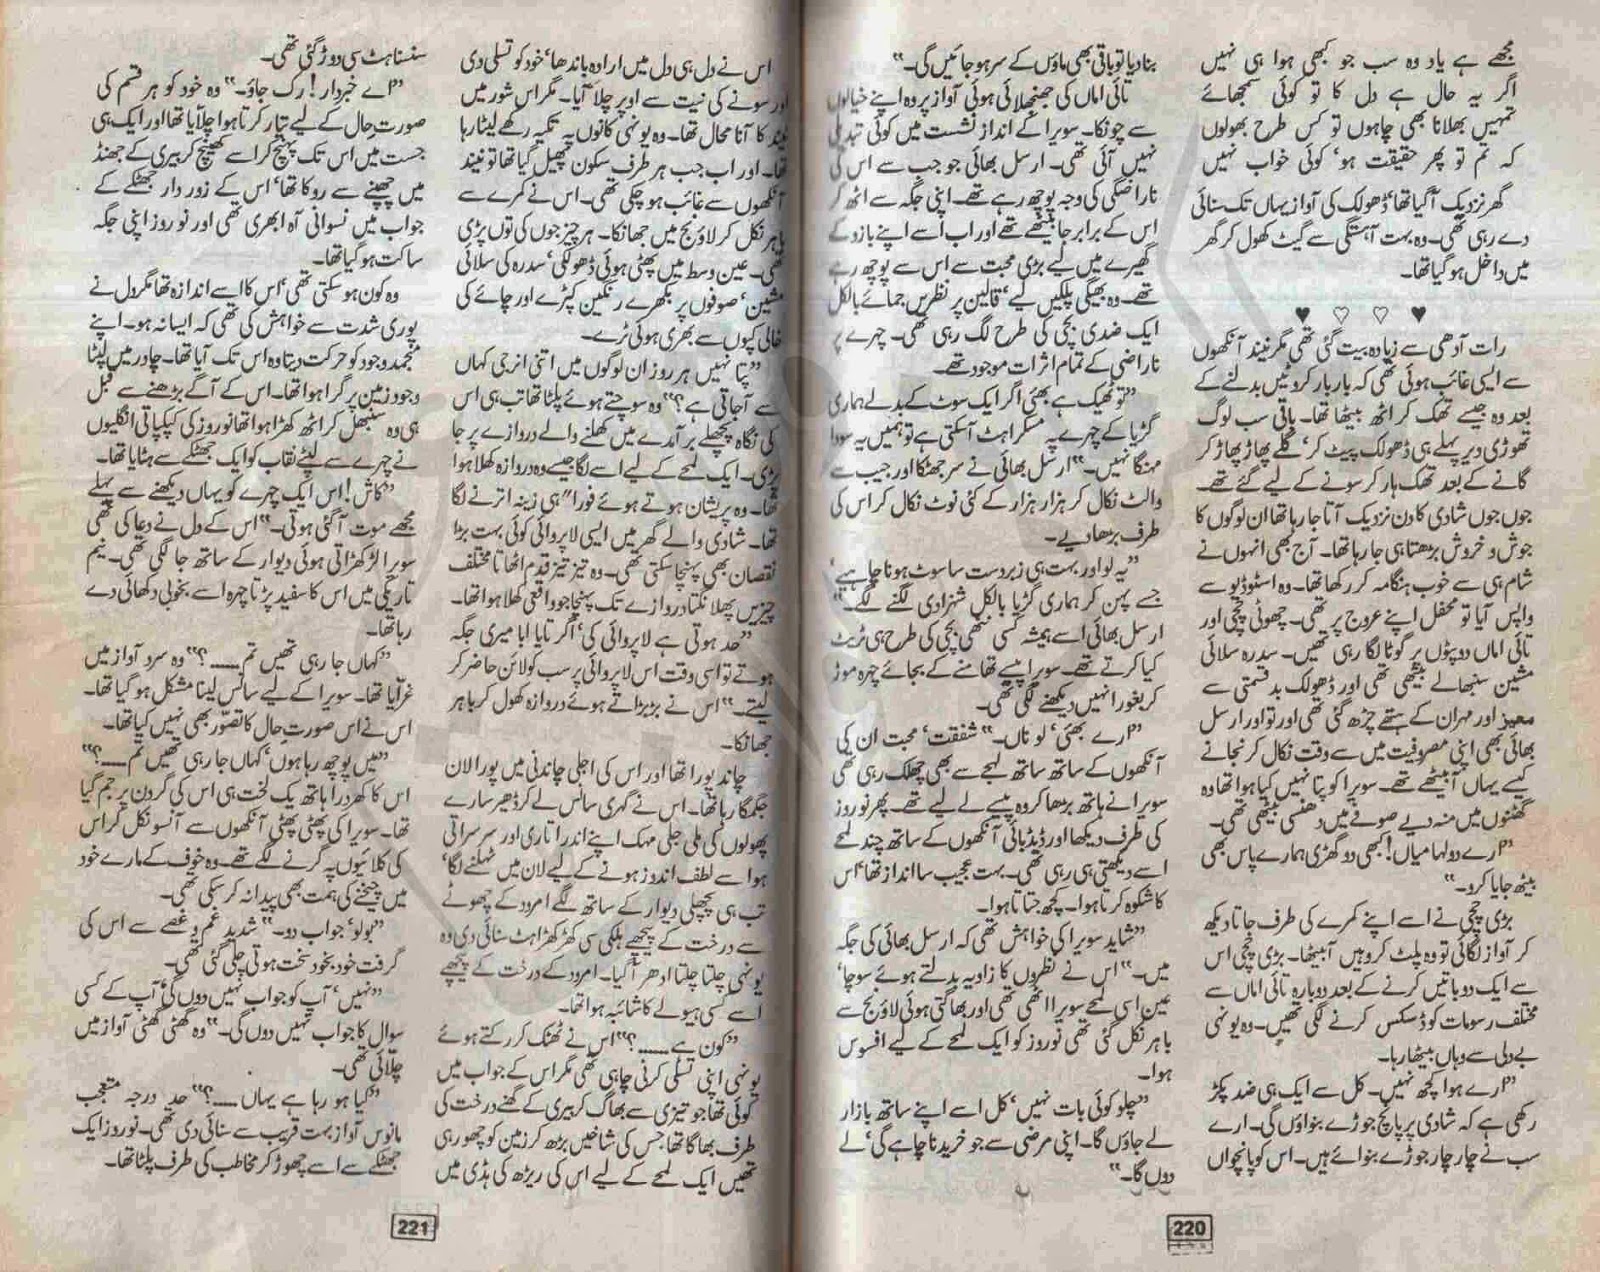 مجھے ہے یاد وہ سب جو کبھی ہوا ہی نہیں
اگر یہ حال ہے دل کا تو کوئی سمجھائے
تمہیں بھلانا بھی چاہوں تو کس طرح بھولوں
کہ تم تو پھر حقیقت ہو، کوئی خواب نہیں
گھر نزدیک آ گیا تھا، ڈھولک کی آواز یہاں تک سنائی
دے رہی تھی۔ وہ بہت آہستگی سے گیٹ کھول کر گھر
میں داخل ہو گیا تھا۔
♥ ♡ ♡ ♥
رات آدھی سے زیادہ بیت گئی تھی مگر نیند آنکھوں
سے ایسی غائب ہوئی تھی کہ بار بار کروٹیں بدلنے کے
بعد وہ جیسے تھک کر اٹھ بیٹھا تھا۔ باقی سب لوگ
تھوڑی دیر پہلے ہی ڈھولک پیٹ کر، گلے پھاڑ پھاڑ کر
گانے کے بعد تھک ہار کر سونے کے لیے گئے تھے۔
جوں جوں شادی کا دن نزدیک آتا جا رہا تھا ان لوگوں کا
جوش و خروش بڑھتا ہی جا رہا تھا۔ آج بھی انہوں نے
شام ہی سے خوب ہنگامہ کر رکھا تھا۔ وہ اسٹوڈیو سے
واپس آیا تو محفل اپنے عروج پر تھی۔ چھوٹی چچی اور
تائی اماں دوپٹوں پر گوٹا لگا رہی تھیں۔ سدرہ سلائی
مشین سنبھالے بیٹھی تھی اور ڈھولک بدقسمتی سے
معیز اور مہران کے ہتھے چڑھ گئی تھی اور تو اور ارسل
بھائی بھی اپنی مصروفیت میں سے وقت نکال کر نجانے
کیسے یہاں آ بیٹھے تھے۔ سویرا کو پتا نہیں کیا ہوا تھا وہ
گھٹنوں میں منہ دیے صوفے میں دھنسی بیٹھی تھی۔
"ارے دولہا میاں! بھی دو گھڑی ہمارے پاس بھی
بیٹھ جایا کرو۔"
بڑی چچی نے اسے اپنے کمرے کی طرف جاتا دیکھ
کر آواز لگائی تو وہ پلٹ کر وہیں آ بیٹھا۔ بڑی چچی اس
سے ایک دو باتیں کرنے کے بعد دوبارہ تائی اماں سے
مختلف رسومات کو ڈسکس کرنے لگی تھیں۔ وہ یونہی
بے دلی سے وہاں بیٹھا رہا۔
"ارے ہوا کچھ نہیں۔ کل سے ایک ہی ضد پکڑ
رکھی ہے کہ شادی پر پانچ جوڑے بنواؤں گی۔ ارے
سب نے چار چار جوڑے بنوائے ہیں۔ اس کو پانچواں
بنا دیا تو باقی بھی ماؤں کے سر ہو جائیں گی۔"
تائی اماں کی جھنجھلائی ہوئی آواز پر وہ اپنے خیالوں
سے چونکا۔ سویرا کے انداز نشست میں کوئی تبدیلی
نہیں آئی تھی۔ ارسل بھائی جو جب سے اس کی
ناراضگی کی وجہ پوچھ رہے تھے۔ اپنی جگہ سے اٹھ کر
اس کے برابر جا بیٹھے تھے اور اب اسے اپنے بازو کے
گھیرے میں لیے بڑی محبت سے اس سے پوچھ رہے
تھے۔ وہ بھیگی پلکیں لیے، قالین پر نظریں جمائے بالکل
ایک ضدی بچی کی طرح لگ رہی تھی۔ چہرے پر
ناراضی کے تمام اثرات موجود تھے۔
"تو ٹھیک ہے بھئی اگر ایک سوٹ کے بدلے ہماری
گڑیا کے چہرے پہ مسکراہٹ آ سکتی ہے تو ہمیں یہ سودا
مہنگا نہیں۔" ارسل بھائی نے سر جھٹکا اور جیب سے
والٹ نکال کر ہزار ہزار کے کئی نوٹ نکال کر اس کی
طرف بڑھا دیے۔
"یہ لو اور بہت ہی زبردست سا سوٹ ہونا چاہیے،
جسے پہن کر ہماری گڑیا بالکل شہزادی لگنے لگے۔"
ارسل بھائی اسے ہمیشہ کسی ننھی بچی کی طرح ہی ٹریٹ
کیا کرتے تھے۔ سویرا پیسے تھامنے کے بجائے چہرہ موڑ
کر بغور انہیں دیکھنے لگی تھی۔
"ارے بھئی، لو ناں۔" شفقت، محبت ان کی
آنکھوں کے ساتھ ساتھ لہجے سے بھی چھلک رہی تھی
سویرا نے ہاتھ بڑھا کر وہ پیسے لے لیے تھے۔ پھر نوروز
کی طرف دیکھا اور ڈبڈبائی آنکھوں کے ساتھ چند لمحے
اسے دیکھتی ہی رہی تھی۔ بہت عجیب سا انداز تھا، اس
کا شکوہ کرتا ہوا۔ کچھ جتاتا ہوا۔
"شاید سویرا کی خواہش تھی کہ ارسل بھائی کی جگہ
میں۔" اس نے نظروں کا زاویہ بدلتے ہوئے سوچا،
عین اسی لمحے سویرا اٹھی تھی اور بھاگتی ہوئی لاؤنج سے
باہر نکل گئی تھی نوروز کو ایک لمحے کے لیے افسوس
ہوا۔
"چلو کوئی بات نہیں، کل اسے اپنے ساتھ بازار
لے جاؤں گا۔ اپنی مرضی سے جو خریدنا چاہے گی، لے
دوں گا۔"
220
اس نے دل ہی دل میں ارادہ باندھا، خود کو تسلی دی
اور سونے کی نیت سے اوپر چلا آیا۔ مگر اس شور میں
نیند کا آنا محال تھا۔ وہ یونہی کانوں پہ تکیہ رکھے لیٹا رہا
تھا۔ اور اب جب ہر طرف سکون پھیل گیا تھا تو نیند
آنکھوں سے غائب ہو چکی تھی۔ اس نے کمرے سے
باہر نکل کر لاؤنج میں جھانکا۔ ہر چیز جوں کی توں پڑی
تھی۔ عین وسط میں پھٹی ہوئی ڈھولکی، سدرہ کی سلائی
مشین، صوفوں پر بکھرے رنگین کپڑے اور چائے کی
خالی کپوں سے بھری ہوئی ٹرے۔
"پتا نہیں ہر روز ان لوگوں میں اتنی انرجی کہاں
سے آ جاتی ہے؟" وہ سوچتے ہوئے پلٹا تھا تب ہی اس
کی نگاہ پچھلے برآمدے میں کھلنے والے دروازے پر جا
پڑی۔ ایک لمحے کے لیے اسے لگا جیسے وہ دروازہ کھلا ہوا
تھا۔ وہ پریشان ہوتے ہوئے فوراً ہی زینہ اترنے لگا
تھا۔ شادی والے گھر میں ایسی لاپروائی کوئی بہت بڑا
نقصان بھی پہنچا سکتی تھی۔ وہ تیز تیز قدم اٹھاتا مختلف
چیزیں پھلانگتا دروازے تک پہنچا جو واقعی کھلا ہوا تھا۔
"حد ہوتی ہے لاپروائی کی، اگر تایا ابا میری جگہ
ہوتے تو اسی وقت اس لاپروائی پر سب کو لائن حاضر کر
لیتے۔" اس نے بڑبڑاتے ہوئے دروازہ کھول کر باہر
جھانکا۔
چاند پورا تھا اور اس کی اجلی چاندنی میں پورا لان
جگمگا رہا تھا۔ اس نے گہری سانس لے کر ڈھیر سارے
پھولوں کی ملی جلی مہک اپنے اندر اتاری اور سرسراتی
ہوا سے لطف اندوز ہونے کے لیے لان میں ٹہلنے لگا،
تب ہی پچھلی دیوار کے ساتھ لگے امرود کے چھوٹے
سے درخت کے پیچھے ہلکی سی کھڑکھڑاہٹ سنائی دی وہ
یونہی چلتا چلتا ادھر آ گیا۔ امرود کے درخت کے پیچھے
اسے کسی ہیولے کا شائبہ ہوا تھا۔
"کون ہے ......؟" اس نے ٹھٹک کر رکتے ہوئے
یونہی اپنی تسلی کرنی چاہی تھی مگر اس کے جواب میں
کوئی تھا جو تیزی سے بھاگ کر بیری کے گھنے درخت کی
طرف بھاگا تھا، جس کی شاخیں بڑھ کر زمین کو چھو رہی
تھیں ایک لمحے کے لیے اس کی ریڑھ کی ہڈی میں
سنسناہٹ سی دوڑ گئی تھی۔
"اے خبردار! رک جاؤ۔" وہ خود کو ہر قسم کی
صورت حال کے لیے تیار کرتا ہوا چلایا تھا اور ایک ہی
جست میں اس تک پہنچ کر اسے کھینچ کر بیری کے جھنڈ
میں چھپنے سے روکا تھا، اس کے زور دار جھٹکے کے
جواب میں نسوانی آہ ابھری تھی اور نوروز اپنی جگہ
ساکت ہو گیا تھا۔
وہ کون ہو سکتی تھی، اس کا اسے اندازہ تھا مگر دل نے
پوری شدت سے خواہش کی تھی کہ ایسا نہ ہو۔ اپنے
منجمد وجود کو حرکت دیتا وہ اس تک آیا تھا۔ چادر میں لپٹا
وجود زمین پر گرا ہوا تھا۔ اس کے آگے بڑھنے سے قبل
ہی وہ سنبھل کر اٹھ کھڑا ہوا تھا نوروز کی کپکپاتی انگلیوں
نے چہرے سے لپٹے نقاب کو ایک جھٹکے سے ہٹایا تھا۔
"کاش! اس ایک چہرے کو یہاں دیکھنے سے پہلے
مجھے موت آ گئی ہوتی۔" اس کے دل نے دعا کی تھی
سویرا لڑکھڑاتی ہوئی دیوار کے ساتھ جا لگی تھی۔ نیم
تاریکی میں اس کا سفید پڑتا چہرہ اسے بخوبی دکھائی دے
رہا تھا۔
"کہاں جا رہی تھیں تم ......؟" وہ سرد آواز میں
غرایا تھا۔ سویرا کے لیے سانس لینا مشکل ہو گیا تھا۔
اس نے اس صورت حال کا تصور بھی نہیں کیا تھا۔
"میں پوچھ رہا ہوں، کہاں جا رہی تھیں تم ......؟"
اس کا کھردرا ہاتھ یک لخت ہی اس کی گردن پر جم گیا
تھا۔ سویرا کی پھٹی پھٹی آنکھوں سے آنسو نکل کر اس
کی کلائیوں پہ گرنے لگے تھے۔ وہ خوف کے مارے خود
میں چیخنے کی ہمت بھی پیدا نہ کر سکی تھی۔
"بولو، جواب دو۔" شدید غم و غصے سے اس کی
گرفت خود بخود سخت ہوتی چلی گئی تھی۔
"نہیں، آپ کو جواب نہیں دوں گی، آپ کے کسی
سوال کا جواب نہیں دوں گی۔" وہ گھٹی گھٹی آواز میں
چلائی تھی۔
"کیا ہو رہا ہے یہاں ......؟" حد درجہ متعجب
مانوس آواز بہت قریب سے سنائی دی تھی۔ نوروز ایک
جھٹکے سے اسے چھوڑ کر مخاطب کی طرف پلٹا تھا۔
221